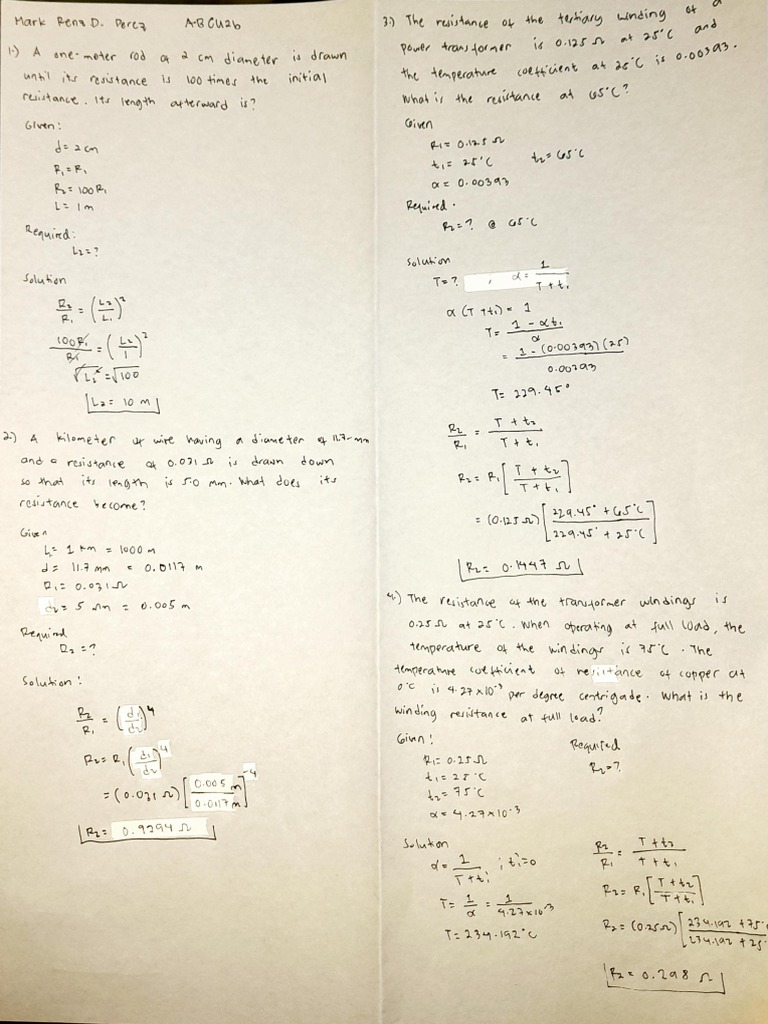 Mark Renz D. Perez ABCU26
1.) A one-meter rod of 2 cm diameter is drawn
until its resistance is 100 times the initial
resistance. Its length afterward is?
Given:
d = 2 cm
R₁ = R₁
R₂ = 100R₁
L = 1 m
Required:
L₂ = ?
Solution
R₂/R₁ = (L₂/L₁)²
100R₁/R₁ = (L₂/1)²
√L₂² = √100
L₂ = 10 m
2.) A kilometer of wire having a diameter of 11.7-mm
and a resistance of 0.031 Ω is drawn down
so that its length is 5.0 mm. What does its
resistance become?
Given
L₁ = 1 km = 1000 m
d = 11.7 mm = 0.0117 m
R₁ = 0.031 Ω
d₂ = 5 mm = 0.005 m
Required
R₂ = ?
Solution:
R₂/R₁ = (d₁/d₂)⁴
R₂ = R₁ (d₁/d₂)⁴
= (0.031 Ω) [0.005 m/0.0117 m]⁻⁴
R₂ = 0.9294 Ω
3.) The resistance of the tertiary winding of a
power transformer is 0.125 Ω at 25°C and
the temperature coefficient at 25°C is 0.00393.
What is the resistance at 65°C?
Given
R₁ = 0.125 Ω
t₁ = 25°C t₂ = 65°C
α = 0.00393
Required.
R₂ = ? @ 65°C
Solution
T = ? , α = 1/(T + t₁)
α (T + t₁) = 1
T = (1 - αt₁)/α
= (1 - (0.00393)(25))/0.00393
T = 229.45°
R₂/R₁ = (T + t₂)/(T + t₁)
R₂ = R₁ [(T + t₂)/(T + t₁)]
= (0.125 Ω) [(229.45° + 65°C)/(229.45° + 25°C)]
R₂ = 0.1447 Ω
4.) The resistance of the transformer windings is
0.25 Ω at 25°C. When operating at full load, the
temperature of the windings is 75°C. The
temperature coefficient of resistance of copper at
0°C is 4.27×10⁻³ per degree centigrade. What is the
winding resistance at full load?
Given: Required
R₁ = 0.25 Ω R₂ = ?
t₁ = 25°C
t₂ = 75°C
α = 4.27×10⁻³
Solution
α = 1/(T + t₁) ; t₁ = 0
T = 1/α = 1/4.27×10⁻³
T = 234.192°C
R₂/R₁ = (T + t₂)/(T + t₁)
R₂ = R₁ [(T + t₂)/(T + t₁)]
R₂ = (0.25 Ω) [(234.192 + 75°)/(234.192 + 25°)]
R₂ = 0.298 Ω